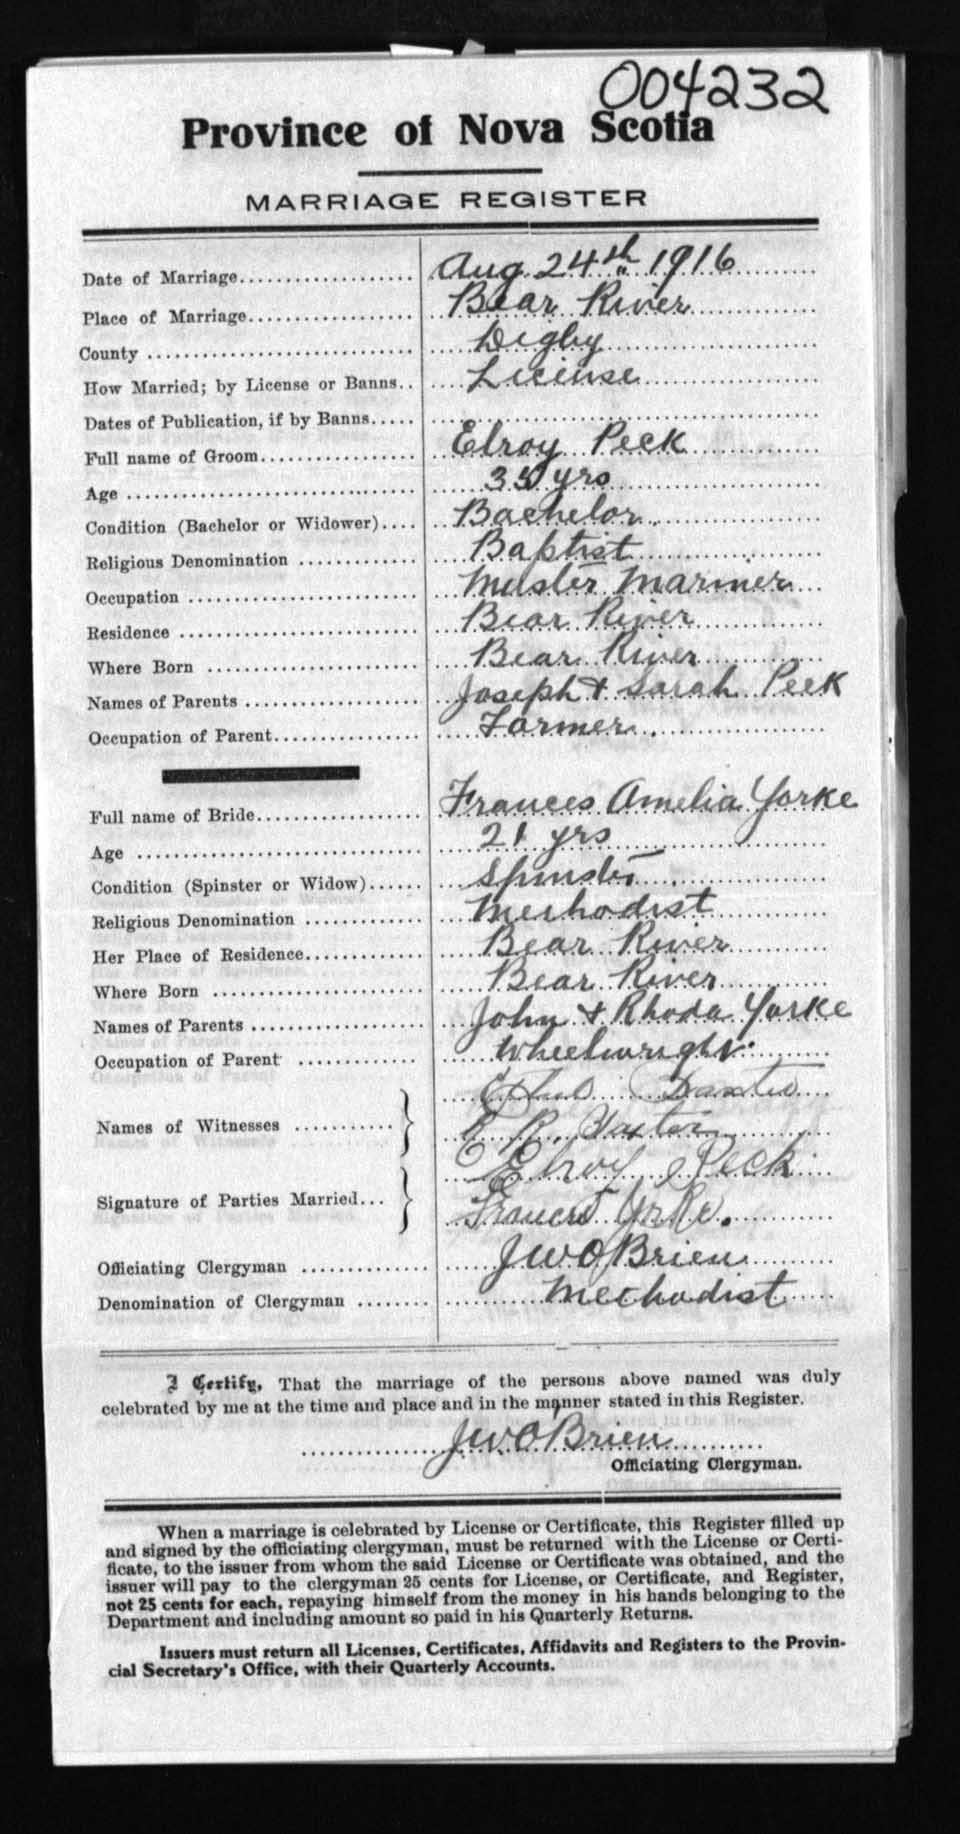 004232
Province of Nova Scotia
MARRIAGE REGISTER
Date of Marriage Aug 24th 1916
Place of Marriage Bear River
County Digby
How Married; by License or Banns License
Dates of Publication, if by Banns
Full name of Groom Elroy Peck
Age 35 yrs
Condition (Bachelor or Widower) Bachelor
Religious Denomination Baptist
Occupation Master Mariner
Residence Bear River
Where Born Bear River
Names of Parents Joseph + Sarah Peck
Occupation of Parent Farmer
Full name of Bride Frances Amelia Yorke
Age 21 yrs
Condition (Spinster or Widow) Spinster
Religious Denomination Methodist
Her Place of Residence Bear River
Where Born Bear River
Names of Parents John + Rhoda Yorke
Occupation of Parent Wheelwright
Names of Witnesses
Signature of Parties Married Elroy Peck
Frances Yorke.
Officiating Clergyman J W O'Brien
Denomination of Clergyman Methodist
I Certify, That the marriage of the persons above named was duly
celebrated by me at the time and place and in the manner stated in this Register.
J W O'Brien
Officiating Clergyman.
When a marriage is celebrated by License or Certificate, this Register filled up
and signed by the officiating clergyman, must be returned with the License or Certi-
ficate, to the issuer from whom the said License or Certificate was obtained, and the
issuer will pay to the clergyman 25 cents for License, or Certificate, and Register,
not 25 cents for each, repaying himself from the money in his hands belonging to the
Department and including amount so paid in his Quarterly Returns.
Issuers must return all Licenses, Certificates, Affidavits and Registers to the Provin-
cial Secretary's Office, with their Quarterly Accounts.